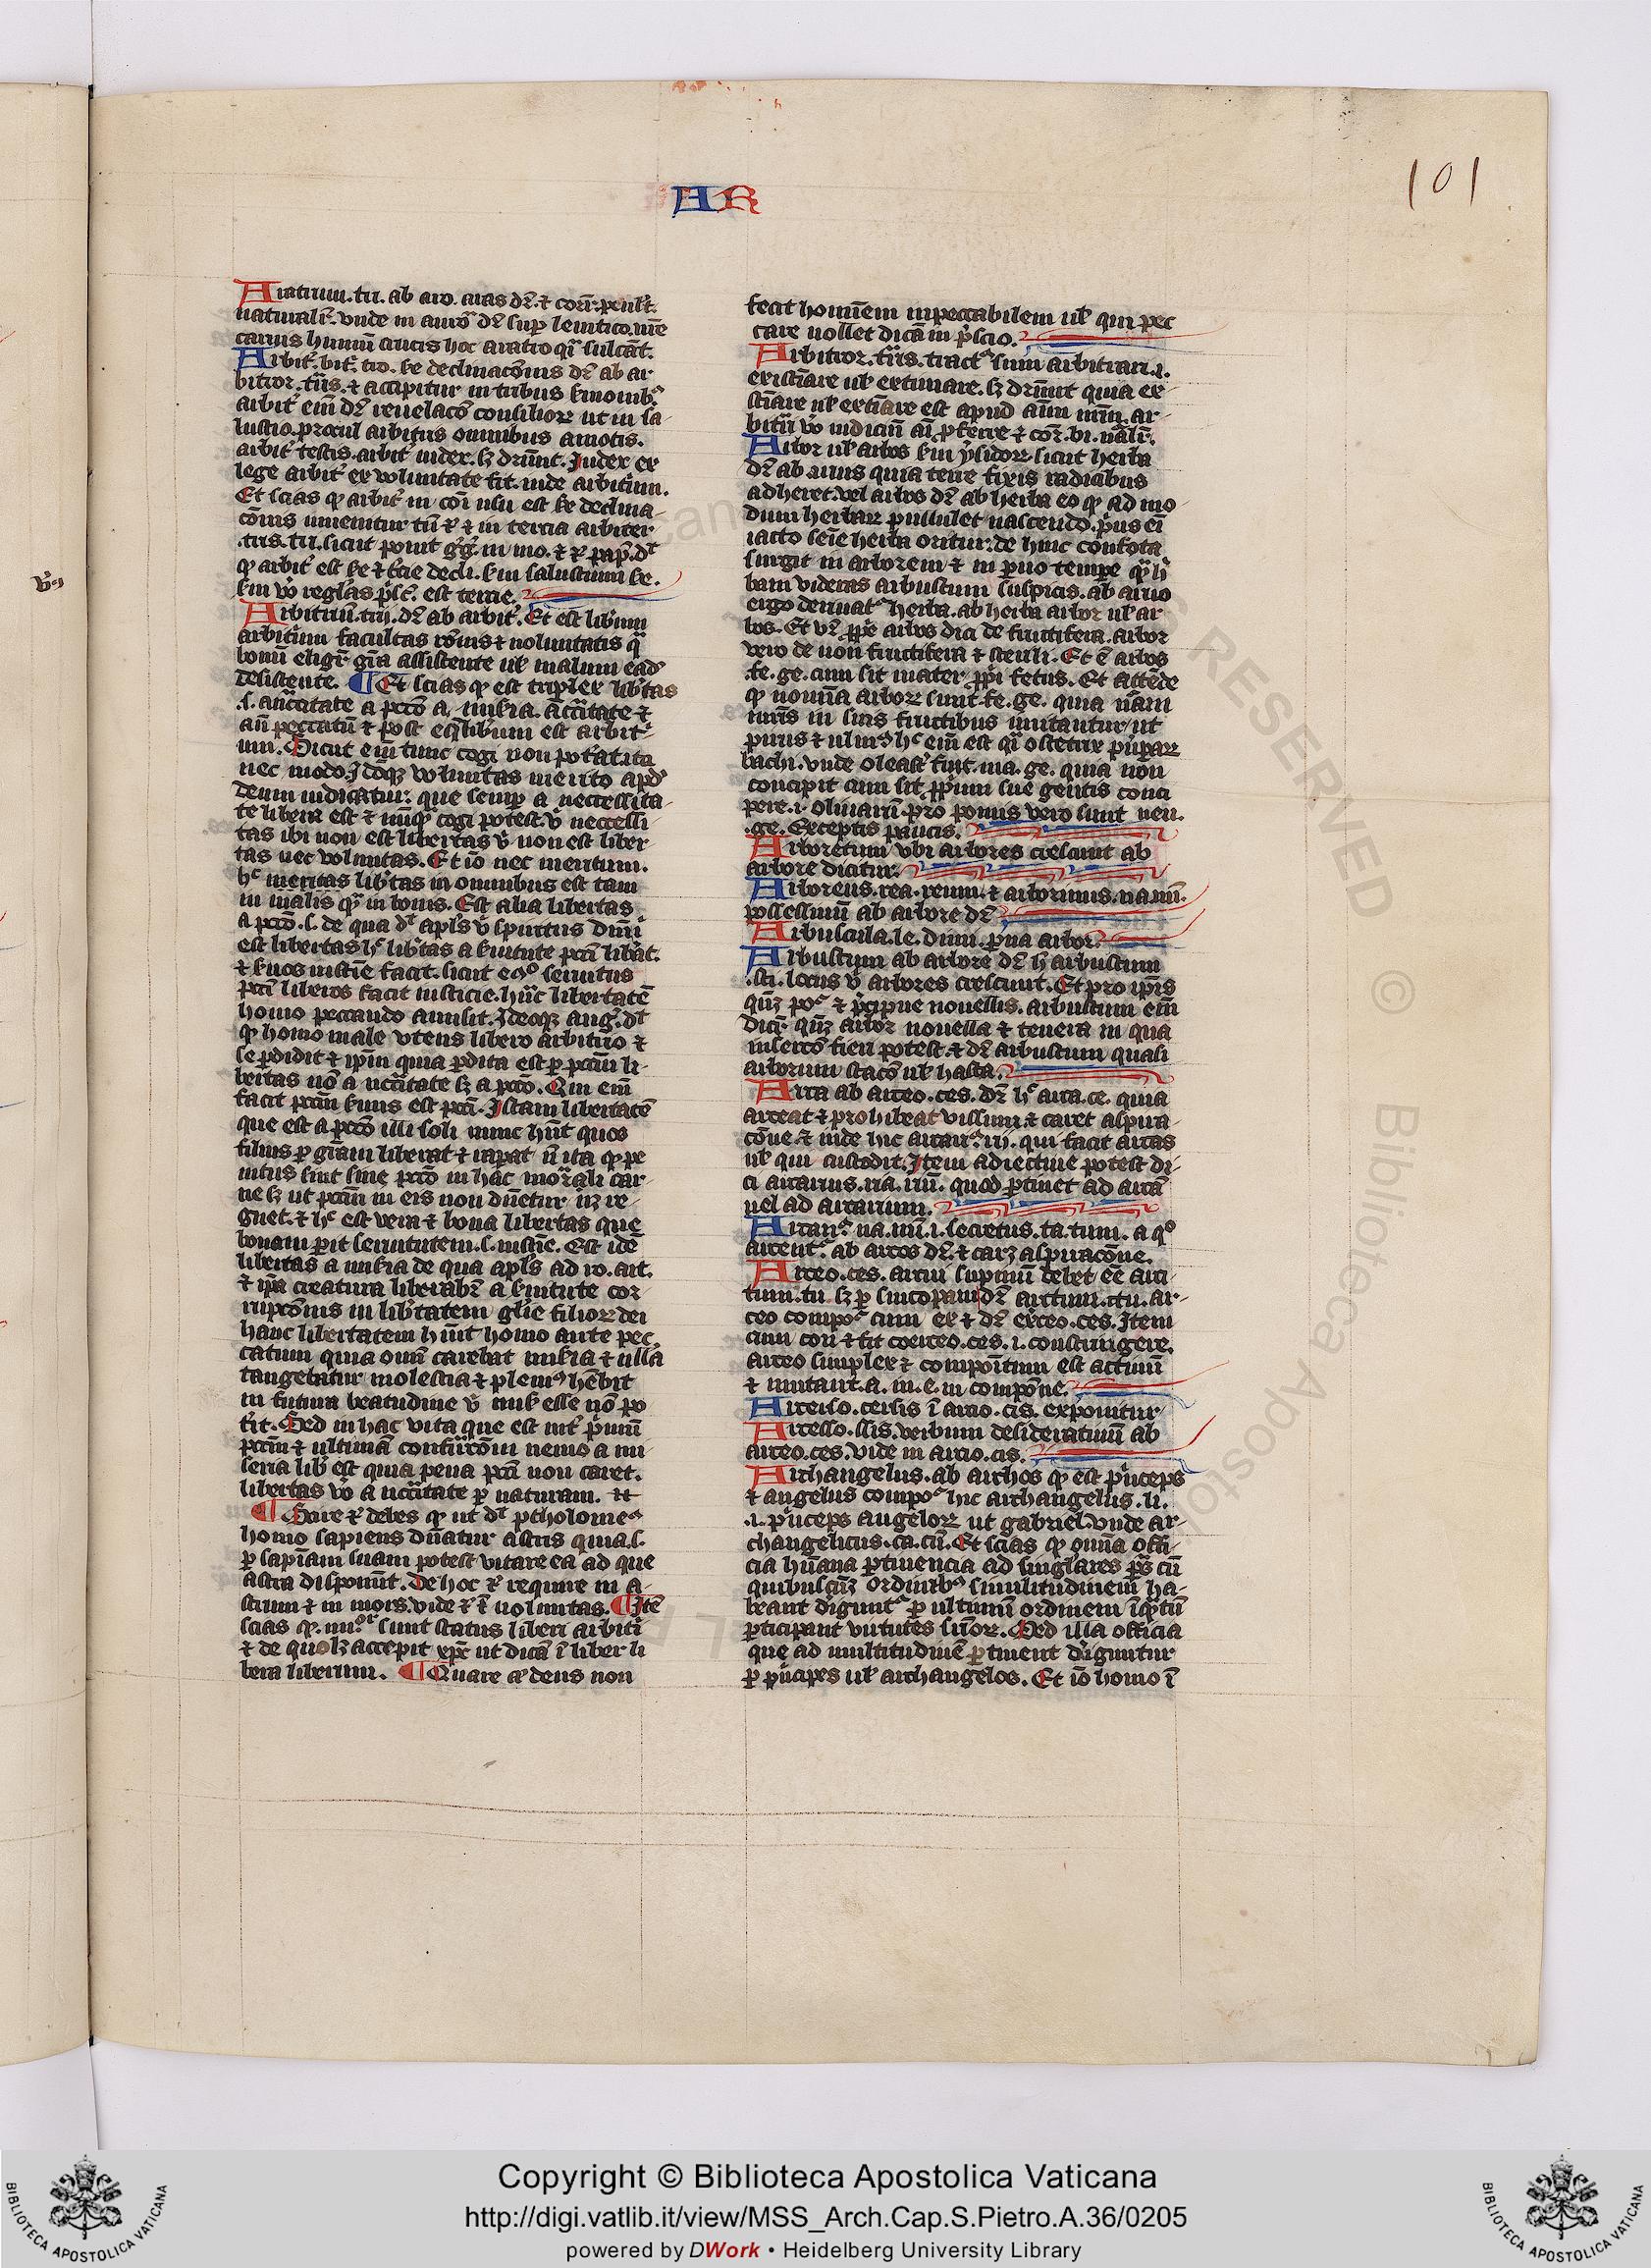 101
AR
Aratrum. tri. ab aro. aras dr̄. ⁊ corr̄. penlt̄.
naturalr̄. vnde in auroª dr̄ sup leuitico. mē
carnis humū crucis hoc aratro qͥ sulcāt.
Arbit̄. bit̄. tro. se declinac̄ois dr̄ ab ar
bitror. tͥis. ⁊ accipitur in tribus smonibꝰ
arbit̄ em̄ dr̄ reuelac̄o consilioꝝ ut in sa
lustio. procul arbitris omnibus amotis.
arbit̄ testis. arbit̄ iudex. sꝫ dr̄unt. Judex ex
lege arbit̄ ex voluntate fit. inde arbitͥum.
Et scias ꝙ arbit̄ in cōi usu est se declina
c̄ois inuenitur tn̄ ⁊ in tercia arbiter
tris. tri. sicut ponit g̊g̊. in mo. ⁊ pap̄. dt̄
ꝙ arbit̄ est se ⁊ t̄cie decli. sm salustium se.
sm vo regl̄as pͥsc̄. est tercie.
Arbitriū. trij. dr̄ ab arbit̄. Et est libum
arbitͥum facultas rōnis ⁊ uoluntatis qª
bonū eligit̄ gr̄a assistente ul̄ malum ead̄
desistente. ¶ Et scias ꝙ est triplex lib̄tas
.s. a nc̄citate a pctō a miseria. A nc̄citate ⁊
an̄ peccatū ⁊ post eq̄ libum est arbitͥ
um. Sicut em̄ tunc cogi non pot̄at ita
nec modo. Jdōqꝫ voluntas merito apd̄
deum iudicatur. que semp a neccessita
te libera est ⁊ nūqͣ cogi potest. vͥ neccessi
tas ibi non est libertas vͥ non est liber
tas nec voluntas. Et iō nec meritum.
h̄ meritas lib̄tas in omnibus est tam
in malis qͣ in bonis. Est alia libertas
a pctō. s. de qua dt̄ apl̄s vͥ spiritus dn̄i
est libertas h̄ lib̄tas a suitute pcti lib̄at.
⁊ suos iustie facit. sicut eqͦ seruitus
pcti liberos facit iusticie. hūc libertatē
homo peccando amisit. Jdeoqꝫ aug. dt̄
ꝙ homo male vtens libero arbitrio ⁊
se ꝑdidit ⁊ ipm̄ quia ꝑdita est ꝑ pctm̄ li
bertas nō a nc̄citate sꝫ a pctō. Qui em̄
facit pctm̄ suus est pcti. Jstam libertatē
que est a pctō illi soli nunc hn̄t quos
filius ꝑ gr̄am liberat ⁊ rapat n̄ ita ꝙ pe
nitus sint sine pctō in hac morali car
ne sꝫ ut pctm̄ in eis non dn̄etur nꝫ re
gnet. ⁊ h̄ est vera ⁊ bona libertas que
bonam ꝑit seruitutem. s. iustie. Est idē
libertas a miseria de qua apl̄s ad ro. ait.
⁊ ip̄a creatura liberabr̄ a suitute cor
rupc̄onis in lib̄tatem glīe filioꝝ dei
hanc libertatem huit homo ante pec
catum quia omī carebat miseria ⁊ ulla
tangebatur molestia ⁊ plemͥ hēbit
in futura beatudine vͥ mise esse nō po
tͥit. Sed in hac vita que est int̄ pͥmū
pctm̄ ⁊ ultimā confirc̄om nemo a mi
seria lib̄ est quia pena pcti non caret.
libertas vo a nc̄citate ꝑ naturam.
¶ Scire debes ꝙ ut dt̄ ptholomeꝰ
homo sapiens dn̄atur astris quia. s.
ꝑ sapiam suam potest vitare ea ad que
astra disponūt. De hoc ⁊ require in a
strum ⁊ in mors. vide ⁊ ī uoluntas. ¶ Jtē
scias ꝙ. iiiͦʳ sunt status liberi arbitͥ
⁊ de quolꝫ accepit exp̄ ut dicā ī liber li
bera liberum. ¶ Quare deus non
fecit hominem inpeccabilem ul̄ qui pec
care nollet dicā in pͥscio.
Arbitror. tͥis. tractꝰ sum arbitrari. i.
existīare ul̄ extimare. sꝫ dr̄unt quia ex
stīare ul̄ extīare est apud aīm nrm̄. ar
bitͥi vo iudiciū aī ꝓferre ⁊ cor̄. bi. nālr̄.
Arbor ul̄ arbos sm ysidoꝝ sicut herba
dr̄ ab aruis quia terre fixis radicibus
adheret. vel arbos dr̄ ab herba eo ꝙ ad mo
dum herbaꝝ pullulet nascendo. pͥus eī
iacto seīe herba oritur. de hinc confota
surgit in arborem ⁊ in ꝑuo tempe qͣ h̄
bam videras arbustum suspicis. ab aruo
ergo deriuatͬ herba. ab herba arbor ul̄ ar
bos. Et vr̄ ꝓpe arbos dici de fructifera. arbor
vero de non fructifera ⁊ sterili. Et ē arbos
.fe. ge. cum sit mater ꝓpͥi fetus. Et attēde
ꝙ noīnā arboꝝ sunt. fe. ge. quia nām
mris in suis fructibus imitantur ut
pirus ⁊ ulmꝰ h̄ em̄ est qͥ ostetrix puꝑaꝝ
bachi. vnde oleast̄ fint. ma. ge. quia non
concipit cum sit ꝓpͥum sue gentis conci
pere. i. oliuarū. pro pomis vero sunt neu.
.ge. Exceptis paucis.
Arboretum vbi arbores crescunt ab
arbore dicitur.
Arboreus. rea. reum. ⁊ arborinus. na. nū.
possessiuū ab arbore dr̄
Arbuscula. le. dimi. ꝑua arbor.
Arbustum ab arbore dr̄ h̄ arbustum
.sti. locus vͥ arbores crescunt. Et pro ipͥis
qn̄qꝫ poͬ ⁊ pͥcipue nouellis. arbustum em̄
dicͬ qn̄qꝫ arbor nouella ⁊ tenera in qua
insercō fieri potest. ⁊ dr̄ arbustum quasi
arborum stacō ul̄ hasta.
Arca ab arceo. ces. dr̄ h̄ arca. ce. quia
arceat ⁊ prohibeat vissum ⁊ caret aspira
cōne. ⁊ inde hic arcarͥꝰ. rij. qui facit arcas
ul̄ qui custodit. Jtem adiectiue potest di
ci arcarius. ria. riū. quod ꝑtinet ad arcā
uel ad arcarium.
Arcanꝰ. na. nū. i. secretus. ta. tum. a qͦ
arcentͬ. ab arcos dr̄. ⁊ carꝫ aspirac̄one.
Arceo. ces. arcui supinū debet ēe arci
tum. tu. sꝫ ꝑ sincopam dr̄ arctum. ctu. ar
ceo compoͬ cum ex ⁊ dr̄ exerceo. ces. Jtem
cum con ⁊ fit coerceo. ces. i. constringere.
arceo simplex ⁊ compoītum est actiuū
⁊ mutant. a. in. e. in compōne.
Arcerso. cersis ī arcio. cis. exponitur
Arcesso. ssis. verbum desideratiuū ab
arceo. ces. vide in arcio. cis.
Archangelus. ab archos ꝙ est pͥnceps
⁊ angelus compoͬ hic archangelus. li.
.i. pͥnceps angeloꝝ ut gabriel. Vnde ar
changelicus. ca. cū. Et scias ꝙ om̄ia offi
cia hūana ꝑtinencia ad singlares ꝑs̄ cū
quibuscūꝫ ordinibꝰ similitudinem ha
beant dirigunt ꝑ ultimū ordinem īqͣtū
ꝑticipant virtutes suoꝝ. Sed illa officia
que ad multitudinē ꝑtinent dirigūtur
ꝑ pͥncipes ul̄ archangelos. Et iō homo ī
Copyright © Biblioteca Apostolica Vaticana
http://digi.vatlib.it/view/MSS_Arch.Cap.S.Pietro.A.36/0205
powered by DWork • Heidelberg University Library
BIBLIOTECA APOSTOLICA VATICANA
BIBLIOTECA APOSTOLICA VATICANA